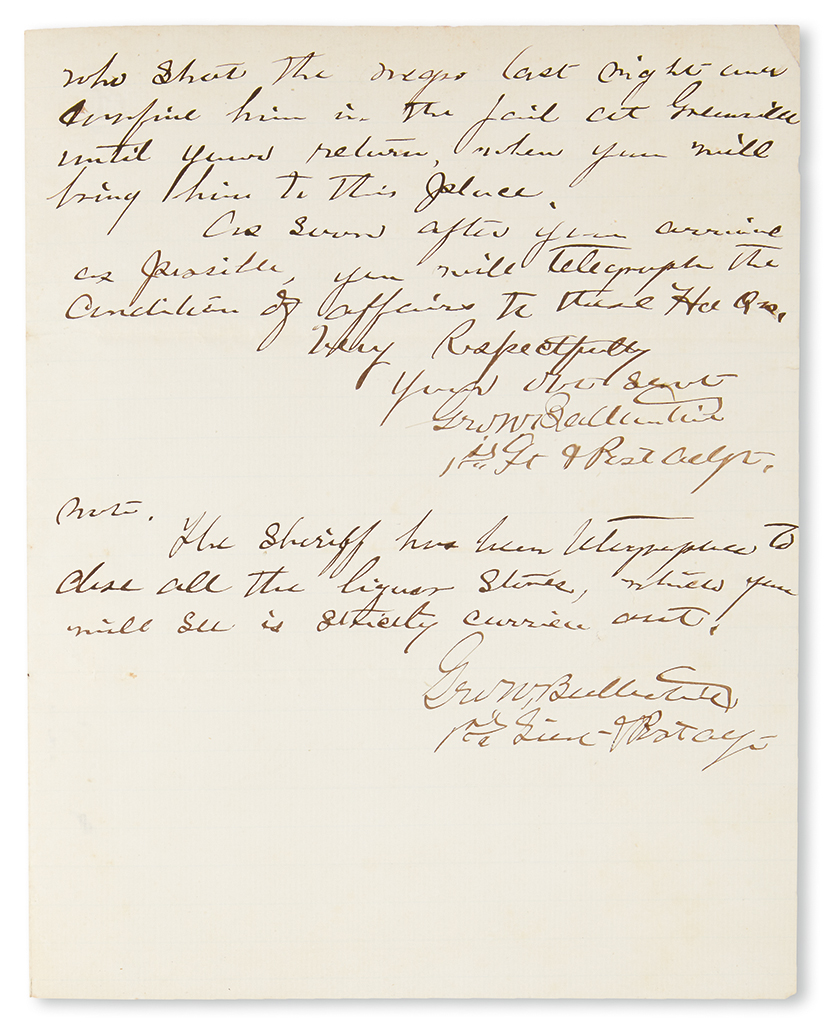 who shot the negro last night and
confine him in the jail at Greenville
until your return, when you will
bring him to this place.
As soon after your arrival
as possible, you will telegraph the
condition of affairs to these Hd Qrs.
Very Respectfully
Your obt servt
Geo W. Ballantine
1st Lt & Post Adjt.
note.
The Sheriff has been telegraphed to
close all the liquor stores, which you
will see is strictly carried out.
Geo W. Ballantine
1st Lieut & Post Adjt